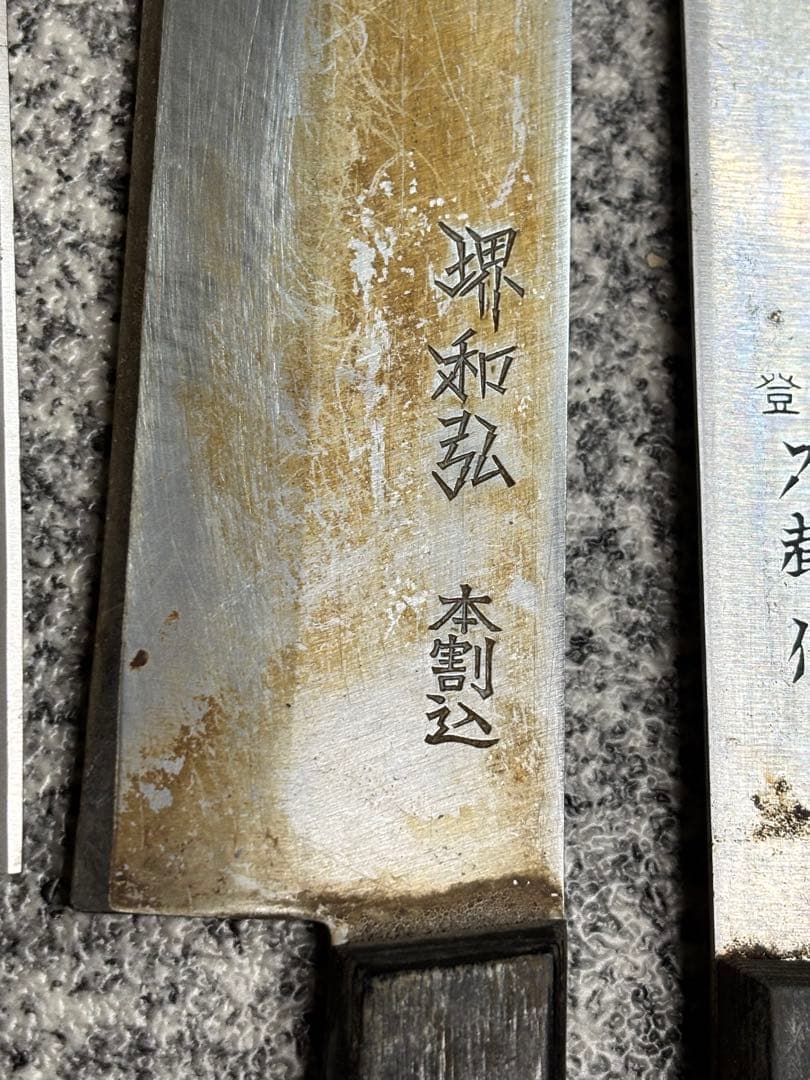 堺和弘
本割込
登
作